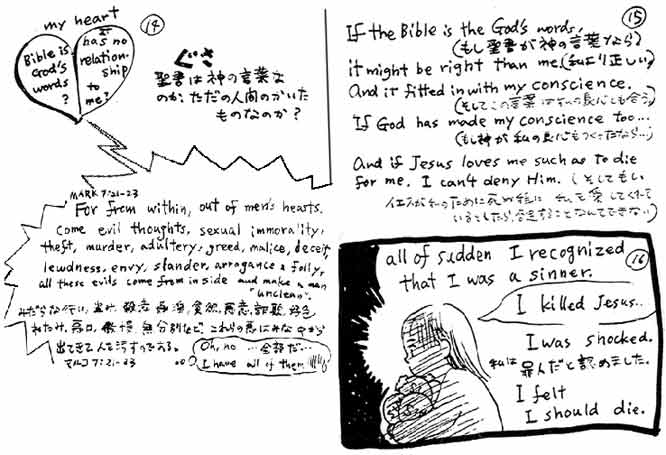 my heart
⑭
Bible is
God's
words
?
has no
relation-
ship
to
me?
ぐさ
聖書は神の言葉な
のか、ただの人間のかいた
ものなのか?
MARK 7:21-23
For from within, out of men's hearts,
come evil thoughts, sexual immorality,
theft, murder, adultery, greed, malice, deceit,
lewdness, envy, slander, arrogance & folly,
all these evils come from inside and make a man
"unclean".
みだらな行い、盗み、殺意、姦淫、貪欲、悪意、詐欺、好色
ねたみ、
無分別など、これらの悪はみな中から
出てきて人を汚すのである。
マルコ 7:21-23
Oh, no ... 全部だ...
I have all of them
⑮
If the Bible is the God's words,
(もし聖書が神の言葉なら)
it might be right than me. (私より正しい)
And it fitted in with my conscience.
(そしてこの言葉は私の良心にも合う)
If God has made my conscience too...
(もし神が私の良心もつくったなら...)
And if Jesus loves me such as to die
for me. I can't deny Him. (そしてもし
イエスが私のために死ぬ程に 私を愛してくれて
いるとしたら、否定することなんてできない)
⑯
all of sudden I recognized
that I was a sinner.
I killed Jesus...
I was shocked.
私は
罪人だと認めました。
I felt
I should die.